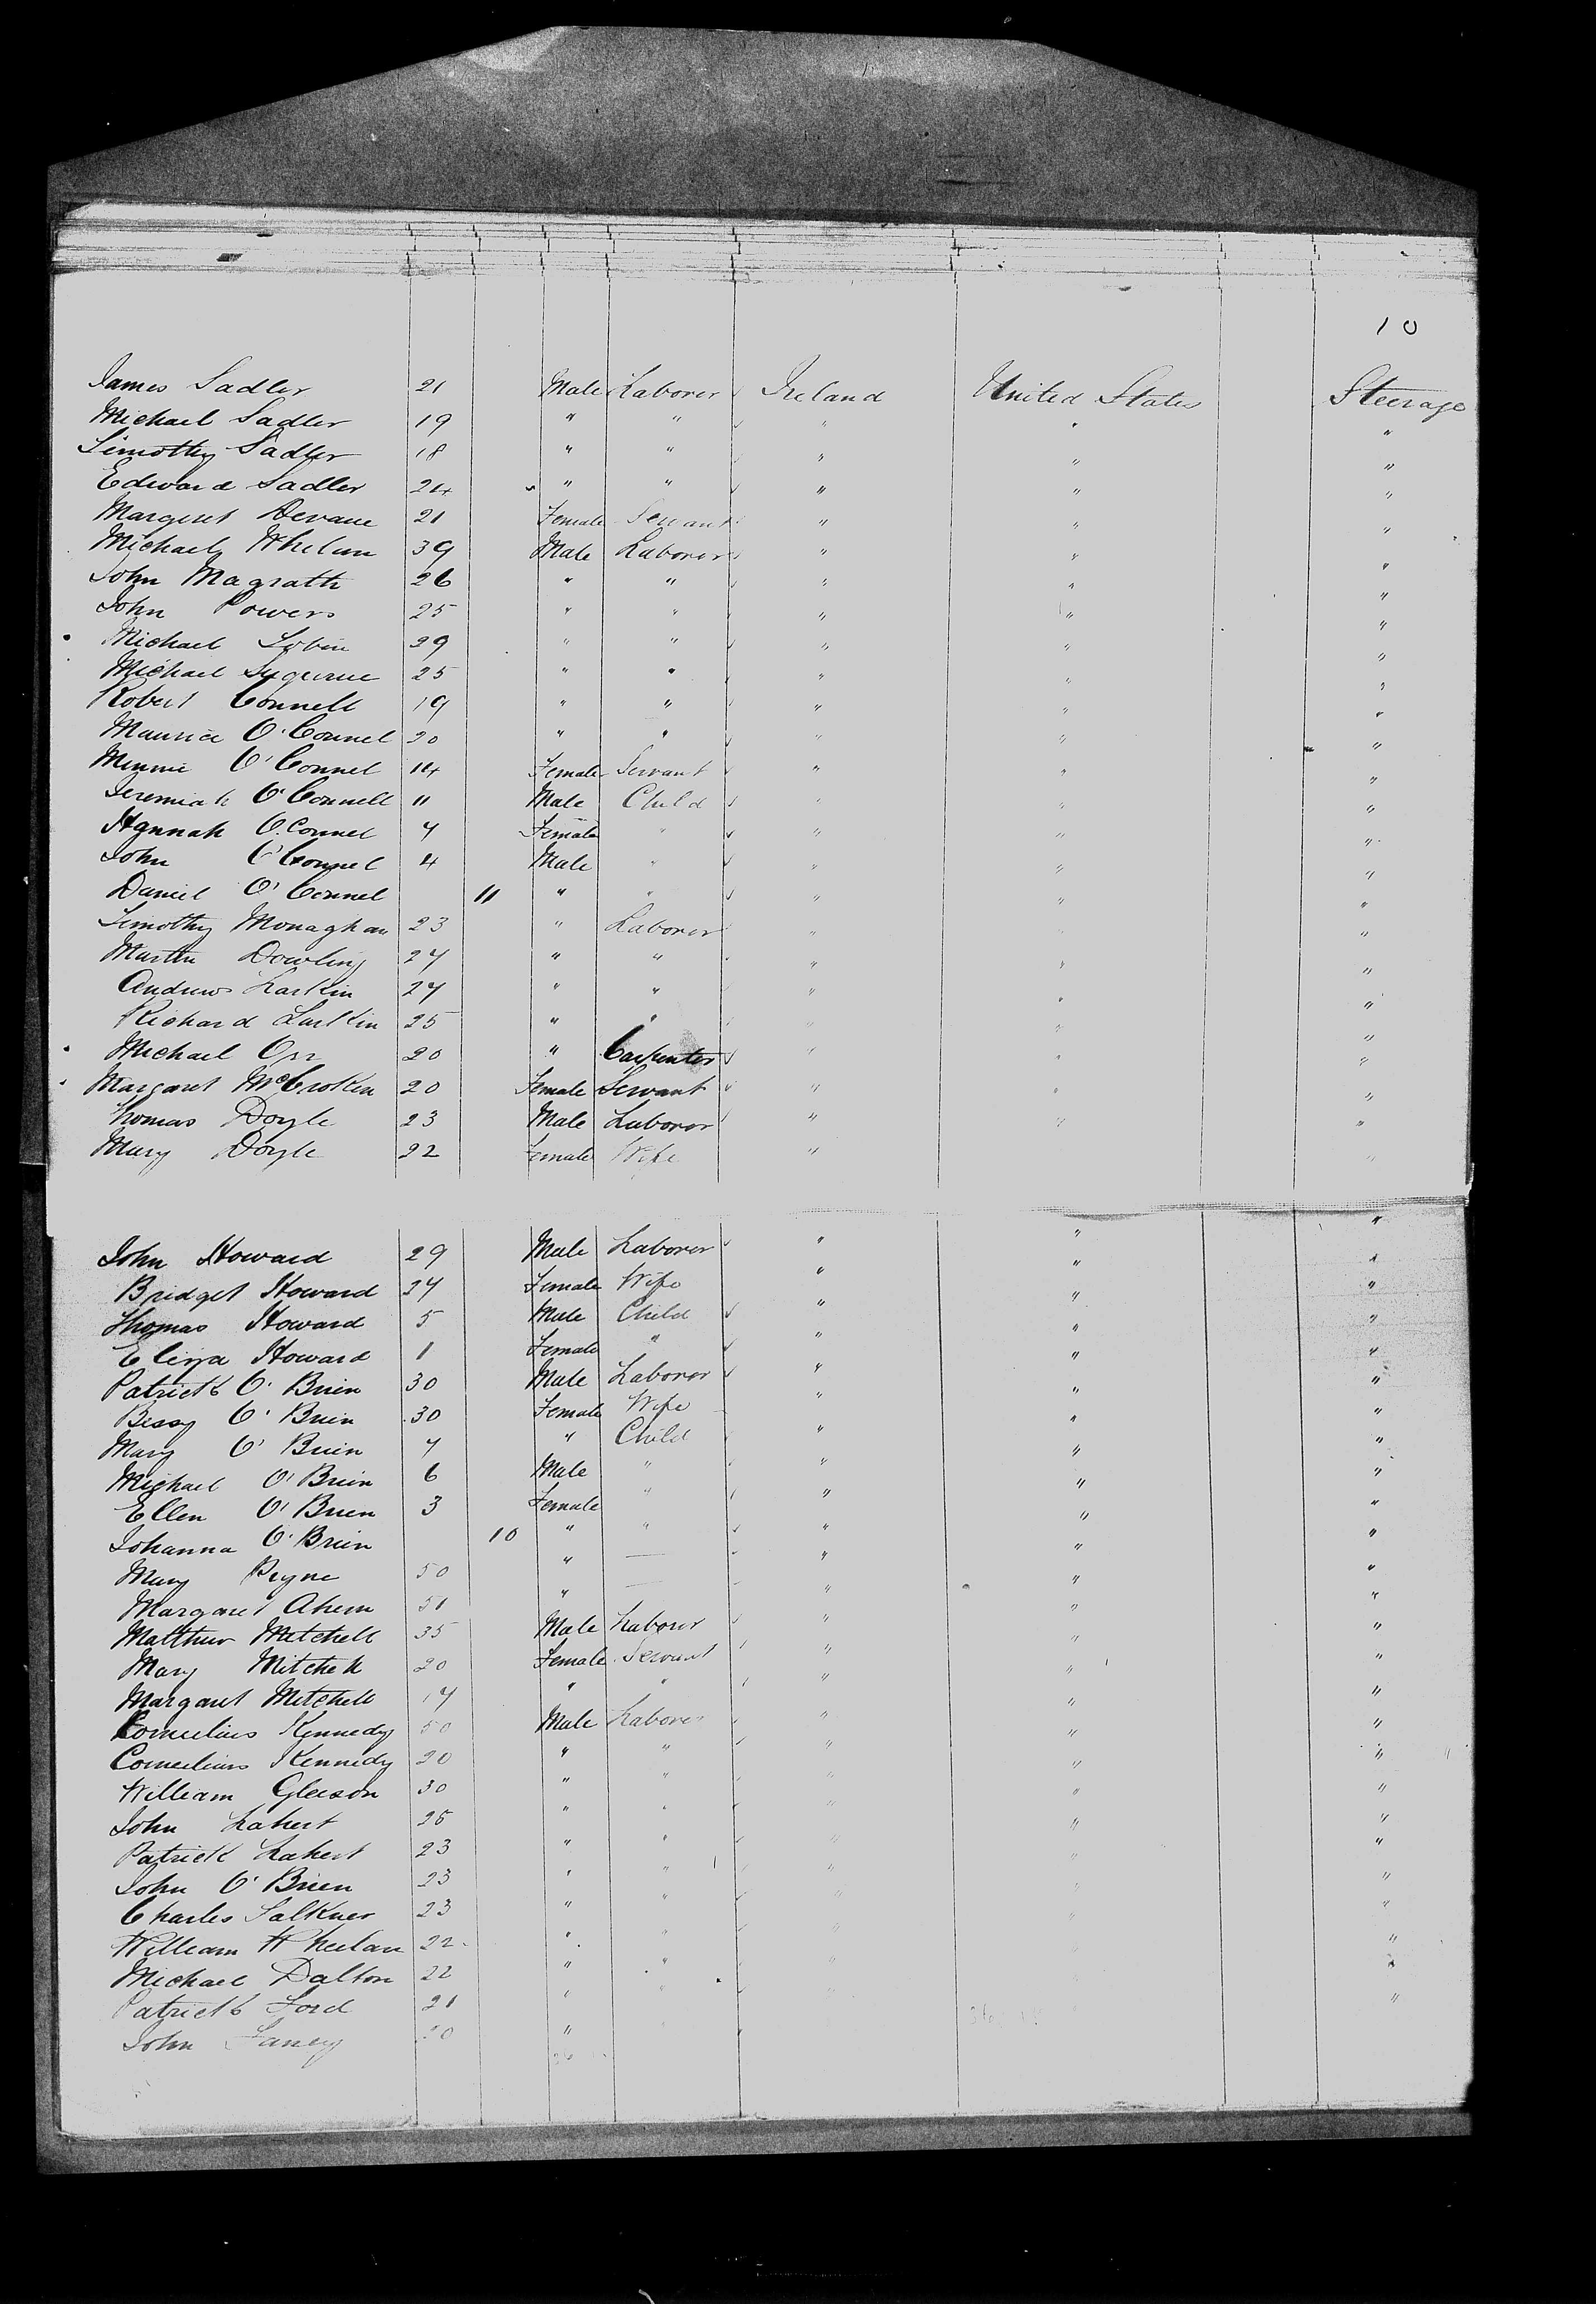 10
James Sadler 21 Male Laborer Ireland United States Steerage
Michael Sadler 19 " " " " "
Timothy Sadler 18 " " " " "
Edward Sadler 24 " " " " "
Margeret Devane 21 Female Servant " " "
Michael Whelan 39 Male Laborer " " "
John Magrath 26 " " " " "
John Powers 25 " " " " "
Michael Tobin 29 " " " " "
Michael 25 " " " " "
Robert Connell 19 " " " " "
Maurice O'Connel 20 " " " " "
Minnie O'Connel 14 Female Servant " " "
Jeremiah O'Connell 11 Male Child " " "
Hannah O.Connel 7 Female " " " "
John O'Connel 4 Male " " " "
Daniel O'Connel 11 " " " " "
Timothy Monaghan 23 " Laborer " " "
Martin Dowling 27 " " " " "
Andrew Larkin 27 " " " " "
Richard Larkin 25 " " " " "
Michael Orr 20 " Carpenter " " "
Margaret McCroken 20 Female Servant " " "
Thomas Doyle 23 Male Laborer " " "
Mary Doyle 22 Female Wife " "
John Howard 29 Male Laborer " " "
Bridget Howard 27 Female Wife " " "
Thomas Howard 5 Male Child " " "
Eliza Howard 1 Female " " " "
Patrick O'Brien 30 Male Laborer " " "
Bessy O'Brien 30 Female Wife " " "
Mary O'Brien 7 " Child " " "
Michael O'Brien 6 Male " " " "
Ellen O'Brien 3 Female " " " "
Johanna O'Brien 10 " " " " "
Mary Peyne 50 " — " " "
Margaret Ahern 51 " — " " "
Matthew Mitchell 35 Male Laborer " " "
Mary Mitchell 20 Female Servant " " "
Margaret Mitchell 17 " " " " "
Cornelius Kennedy 50 Male Laborer " " "
Cornelius Kennedy 20 " " " " "
William Gleeson 30 " " " " "
John Lahert 25 " " " " "
Patrick Lahert 23 " " " " "
John O'Brien 23 " " " " "
Charles Falkner 23 " " " " "
William Wheelan 22 " " "
Michael Dalton 22 " " "
Patrick Ford 21 " " "
John 20 "